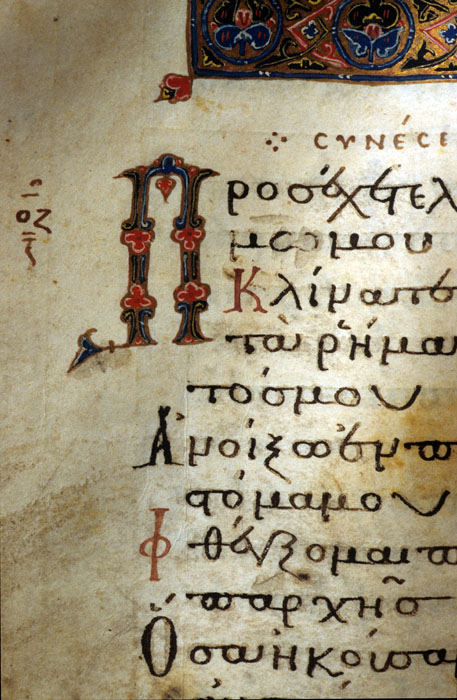 ΟΖ
CΥΝΈCΕ
Προσέχετε λ
μω μου
Κλίνατε
τὰ ῥήμα
τόσ μου
Ἀνοίξω ἐν π
στόμα μου
Φθέγξομαι π
ἀπαρχῆσ
Ὅσα ἠκούσα